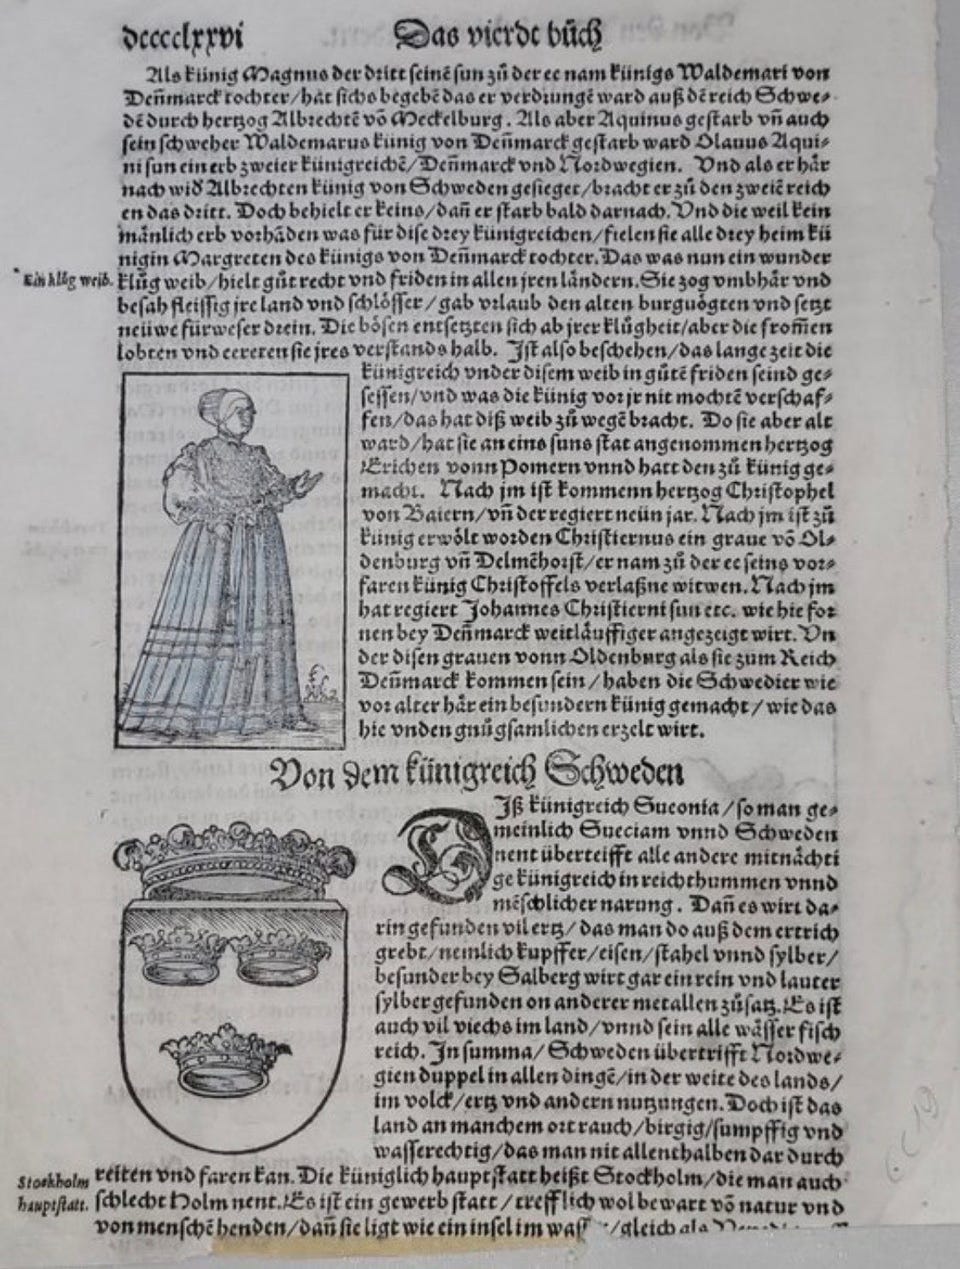 dcccclxxvi
Das vierdt bůch
Als künig Magnus der dritt seinē sun zů der ee nam künigs Waldemari von
Deñmarck tochter/hat sichs begebē das er verdrungē ward auß dē reich Schwe⸗
dē durch hertzog Albrechtē vō Meckelburg. Als aber Aquinus gestarb vñ auch
sein schweher Waldemarus künig von Deñmarck gestarb ward Olauus Aqui⸗
ni sun ein erb zweier künigreichē/Deñmarck vnd Nordwegien. Vnd als er här
nach wid Albrechten künig von Schweden gesieget/bracht er zů den zweiē reich
en das dritt. Doch behielt er keins/dañ er starb bald darnach. Vnd die weil kein
mänlich erb vorhāden was für dise drey künigreichen/fielen sie alle drey heim kü
nigin Margreten des künigs von Deñmarck tochter. Das was nun ein wunder
Ein klůg weib.
klůg weib/hielt gůt recht vnd friden in allen jren ländern. Sie zog vmbhär vnd
besah fleissig jre land vnd schlösser/gab vrlaub den alten burguögten vnd setzt
neüwe fürweser drein. Die bösen entsetzten sich ab jrer klůgheit/aber die from̃en
lobten vnd eereten sie jres verstands halb. Jst also beschehen/das lange zeit die
künigreich vnder disem weib in gůtē friden seind ge⸗
sessen/vnd was die künig vor jr nit mochtē verschaf⸗
fen/das hat diß weib zů wegē bracht. Do sie aber alt
ward/hat sie an eins suns stat angenommen hertzog
Erichen vonn Pomern vnnd hatt den zů künig ge⸗
macht. Nach jm ist kommenn hertzog Christophel
von Baiern/vñ der regiert neün jar. Nach jm ist zů
künig erwölt worden Christiernus ein graue vō Ol⸗
denburg vñ Delmēhorst/er nam zů der ee seins vor⸗
faren künig Christoffels verlaßne witwen. Nach jm
hat regiert Johannes Christierni sun etc. wie hie for
nen bey Deñmarck weitläuffiger angezeigt wirt. Vn
der disen grauen vonn Oldenburg als sie zum Reich
Deñmarck kommen sein/haben die Schwedier wie
vor alter här ein besundern künig gemacht/wie das
hie vnden gnůgsamlichen erzelt wirt.
Von dem künigreich Schweden
Diß künigreich Suconia/so man ge⸗
meinlich Sueciam vnnd Schweden
nent überteifft alle andere mitnächti
ge künigreich in reichthummen vnnd
mēschlicher narung. Dañ es wirt da⸗
rin gefunden vil ertz/das man do auß dem ertrich
grebt/nemlich kupffer/eisen/stahel vnnd sylber/
besunder bey Salberg wirt gar ein rein vnd lauter
sylber gefunden on anderer metallen zůsatz. Es ist
auch vil viechs im land/vnnd sein alle wässer fisch
reich. Jn summa/Schweden übertrifft Nordwe⸗
gien duppel in allen dingē/in der weite des lands/
im volck/ertz vnd andern nutzungen. Doch ist das
land an manchem ort rauch/birgig/sumpffig vnd
wasserechtig/das man nit allenthalben dar durch
Stockholm
hauptstatt.
reiten vnd faren kan. Die küniglich hauptstatt heißt Stockholm/die man auch
schlecht Holm nent. Es ist ein gewerb statt/trefflich wol bewart vō natur vnd
von menschē henden/dañ sie ligt wie ein insel im /gleich als